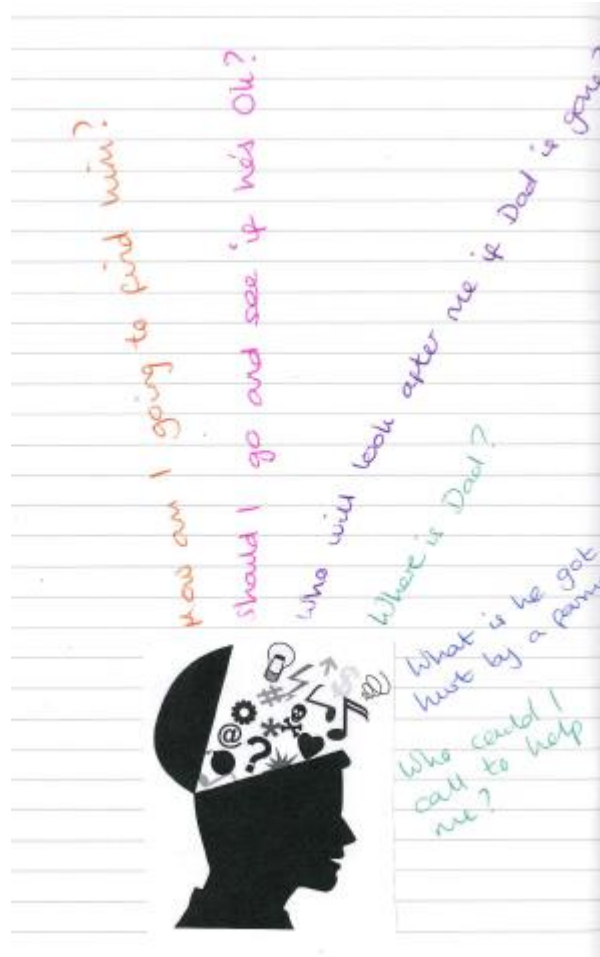 How am I going to find him?
Should I go and see if he's Ok?
Who will look after me if Dad is gone?
Where is Dad?
What is he got
hurt by a
Who could I
call to help
me?
@
#
?
*
$